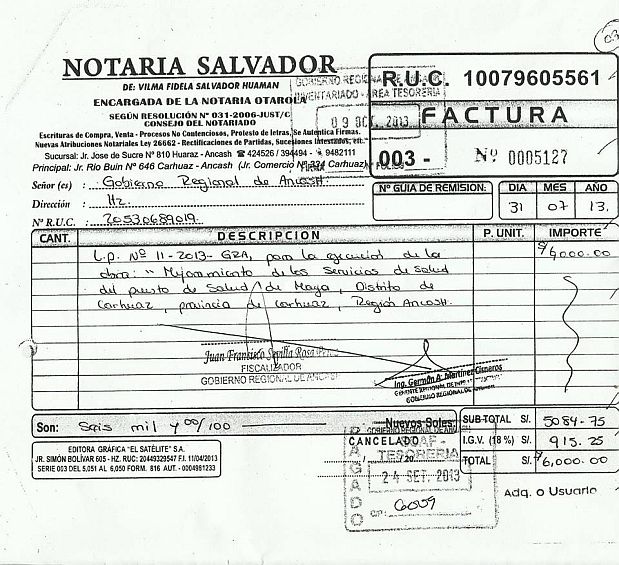 NOTARIA SALVADOR
DE: VILMA FIDELA SALVADOR HUAMAN
ENCARGADA DE LA NOTARIA OTAROLA
SEGÚN RESOLUCIÓN Nº 031-2006-JUST/C
CONSEJO DEL NOTARIADO
Escrituras de Compra, Venta - Procesos No Contenciosos, Protesto de letras, Se Autentica Firmas.
Nuevas Atribuciones Notariales Ley 26662 - Rectificaciones de Partidas, Sucesiones Intestados, etc.
Sucursal: Jr. Jose de Sucre Nº 810 Huaraz - Ancash ☎ 424526 / 394494 - 9482111
Principal: Jr. Río Buin Nº 646 Carhuaz - Ancash (Jr. Comercio Nº 334 Carhuaz)
GOBIERNO REGIONAL
INVENTARIADO - AREA TESORERIA
09 OCT. 2013
FIRMA
R.U.C. 10079605561
FACTURA
003 - Nº 0005127
Señor (es) : Gobierno Regional de Ancash.
Dirección : Hz.
Nº R.U.C. : 20530689019
Nº GUIA DE REMISION:
DIA MES AÑO
31 07 13.
CANT. DESCRIPCION P. UNIT. IMPORTE
L.P. Nº 11-2013-GRA, para la ejecucion de la S/6,000.00
obra: "Mejoramiento de los Servicios de Salud
del puesto de Salud de Maya, Distrito de
Carhuaz, provincia de Carhuaz, Región Ancash.
Juan Francisco Sevilla
FISCALIZADOR
GOBIERNO REGIONAL DE ANCASH
Ing. Germán A. Martínez Cisneros
GOBIERNO REGIONAL DE ANCASH
Son: Seis mil y 00/100 Nuevos Soles:
SUB-TOTAL S/. 5084-75
I.G.V. (18 %) S/. 915.25
TOTAL S/. 6,000.00
GOBIERNO REGIONAL DE
CANCELADO
TESORERIA
PAGADO
24 SET. 2013
CP: 6059
EDITORA GRÁFICA "EL SATÉLITE" S.A.
JR. SIMÓN BOLÍVAR 605 - HZ. RUC: 20449329547 F.I. 11/04/2013
SERIE 003 DEL 5,051 AL 6,050 FORM. 816 AUT. - 0004981233
Adq. o Usuario